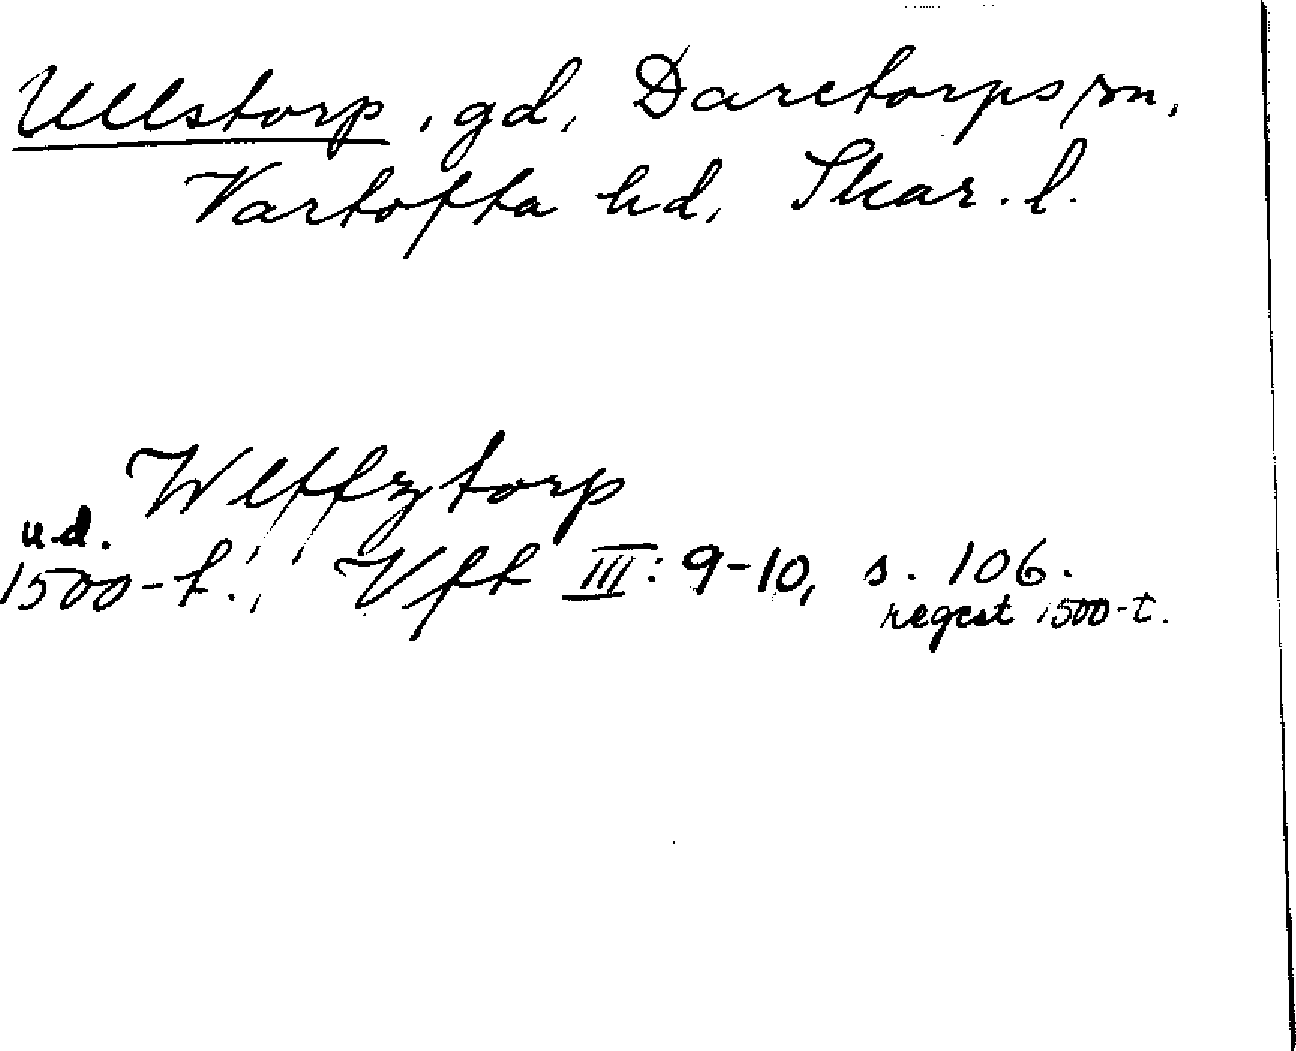 Ullstorp, gd, Daretorps sn,
Vartofta hd, Skar. l.
Wlffztorp
u.d.
1500-t., Vft III: 9-10, s. 106.
regest 1500-t.